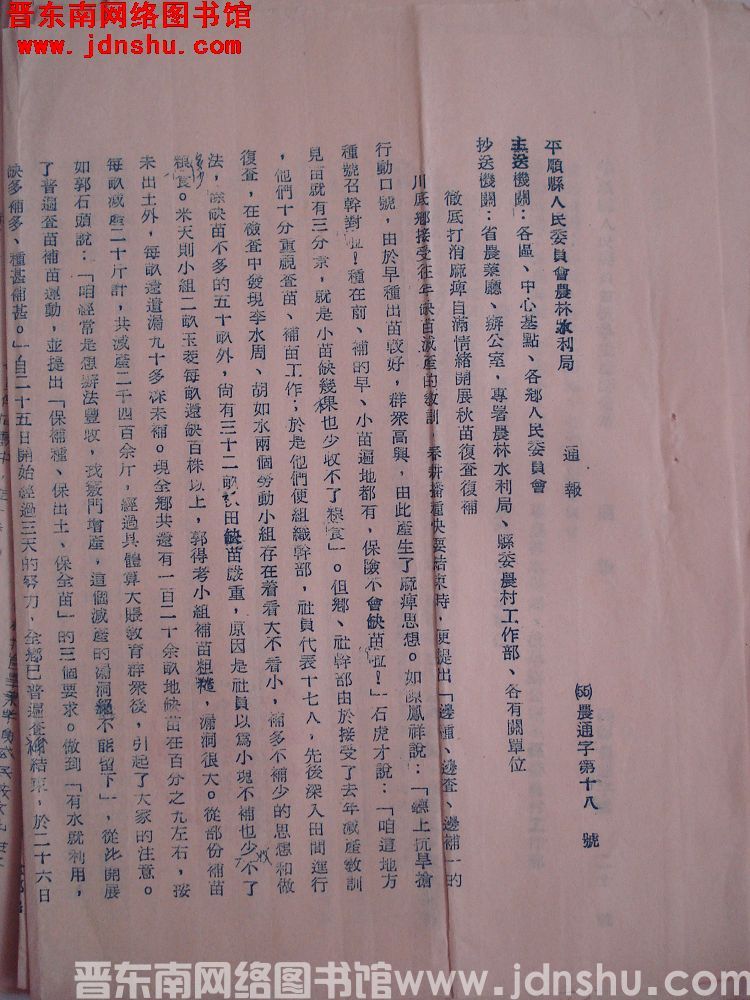 晋东南网络图书馆
www.jdnshu.com
平順縣人民委員會農林水利局 通報 (56)農通字第十八號
主送機關:各區、中心基點、各鄉人民委員會
抄送機關:省農業廳、辦公室,專署農林水利局、縣委農村工作部、各有關單位
徹底打消麻痺自滿情緒開展秋苗復查復補
川底鄉接受往年缺苗減產的教訓 春耕播種快要結束時,更提出「邊種、邊查、邊補」的
行動口號,由於早種出苗較好,群衆高興,由此產生了麻痺思想。如陳鳳祥說:「趕上抗旱搶
種號召幹對啦!種在前、補的早、小苗遍地都有,保險不會缺苗啦!」石虎才說:「咱這地方
見苗就有三分業,就是小苗缺幾棵也少收不了糧食」。但鄉、社幹部由於接受了去年減產教訓
,他們十分重視查苗、補苗工作;於是他們便組織幹部,社員代表十七人,先後深入田間進行
復查,在檢查中發現李水周、胡如水兩個勞動小組存在着看大不看小,補多不補少的思想和做
法,除缺苗不多的五十畝外,尚有三十二畝田缺苗嚴重,原因是社員以為小現不補也少收不了
糧食。米天則小組二畝玉茭每畝還缺百株以上,郭得考小組補苗粗糙,漏洞很大。從部份補苗
未出土外,每畝還遺漏九十多株未補。現全鄉共還有一百二十余畝地缺苗在百分之九左右,按
每畝減產二十斤計,共減產二千四百余斤,經過具體算大賬教育群衆後,引起了大家的注意。
如郭石頭說:「咱經常是想辦法豐收,找竅門增產,這個減產的漏洞絕不能留下」,從此開展
了普遍查苗補苗運動,並提出「保補種、保出土、保全苗」的三個要求。做到「有水就利用,
缺多補多、種甚補甚。」自二十五日開始經過三天的努力,全鄉已普遍查補結束,於二十六日
晋东南网络图书馆www.jdnshu.com